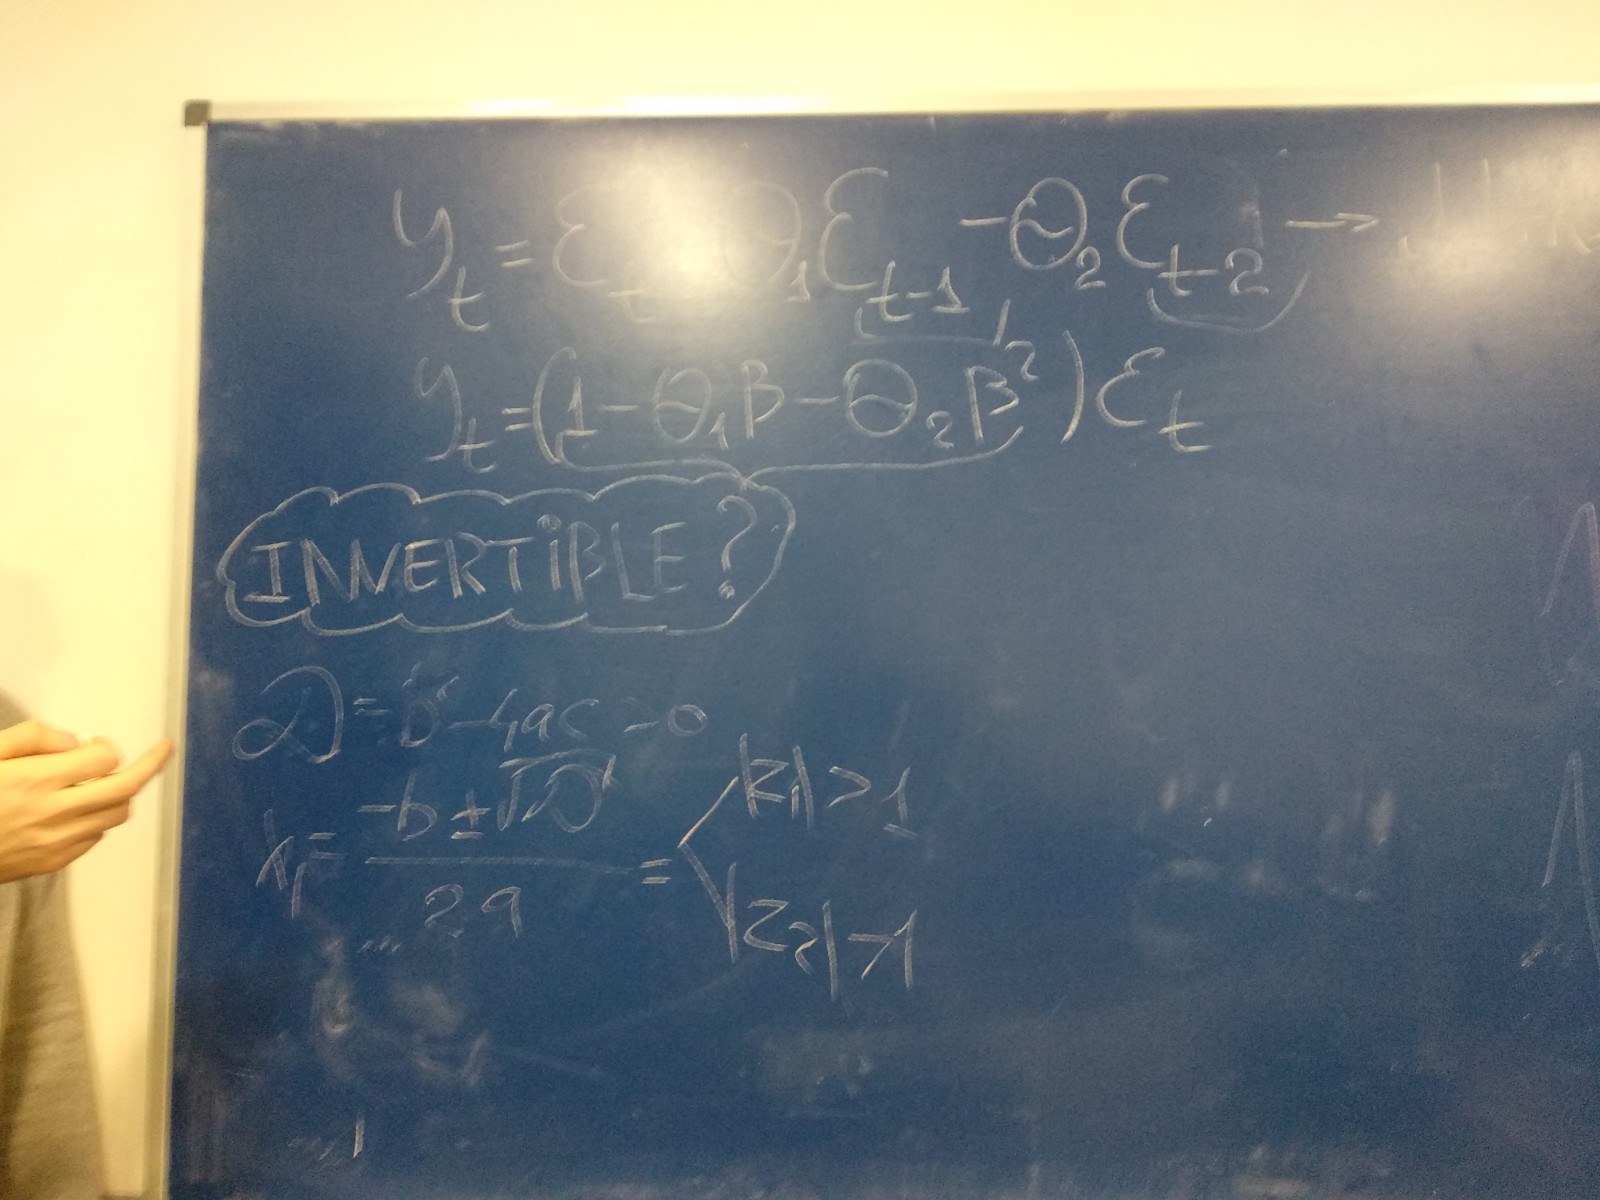 y_t = ε_t θ_1 ε_{t-1} - θ_2 ε_{t-2} →
y_t = (1 - θ_1 B - θ_2 B^2) ε_t
INVERTIBLE ?
D = b^2 - 4ac > 0
x_1 = (-b ± √D) / 2a = |z_1| > 1
|z_2| > 1